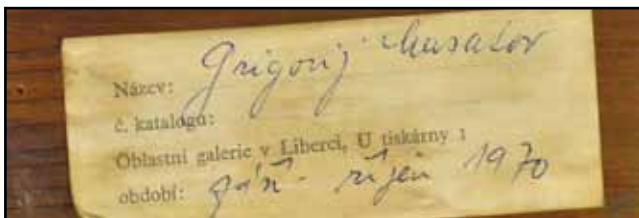 Grigorij Musatov
Název:
č. katalogu:
Oblastní galerie v Liberci, U tiskárny 1
období: září - říjen 1970